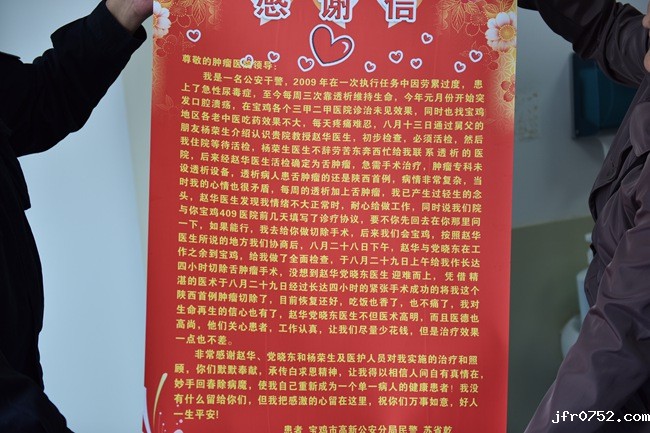 感谢信
尊敬的肿瘤医院领导：
我是一名公安干警，2009年在一次执行任务中因劳累过度，患
上了急性尿毒症，至今每周三次靠透析维持生命，今年元月份开始突
发口腔溃疡，在宝鸡各个三甲二甲医院诊治未见效果，同时也找宝鸡
地区各老中医吃药效果不大，每天疼痛难忍，八月十三日通过舅父的
朋友杨荣生介绍认识贵院教授赵华医生，初步检查，必须活检，然后
我住院等待活检，杨荣生医生不辞劳苦东奔西忙给我联系透析的医
院，后来经赵华医生活检确定为舌肿瘤，急需手术治疗，肿瘤专科未
设透析设备，透析病人患舌肿瘤的还是陕西首例，病情非常复杂，当
时我的心情也很矛盾，每周的透析加上舌肿瘤，我已产生过轻生的念
头，赵华医生发现我情绪不大正常时，耐心给做工作，同时说我们院
与你宝鸡409医院前几天填写了诊疗协议，要不你先回去在你那里问
一下，如果能行，我去给你做切除手术，后来我们会宝鸡，按照赵华
医生所说的地方我们协商后，八月二十八日下午，赵华与党晓东在工
作之余到宝鸡，给我做了全面检查，于八月二十九日上午给我作长达
四小时切除舌肿瘤手术，没想到赵华党晓东医生迎难而上，凭借精
湛的医术于八月二十九日经过长达四小时的紧张手术成功的将我这个
陕西首例肿瘤切除了，目前恢复还好，吃饭也香了，也不痛了，我对
生命再生的信心也有了，赵华党晓东医生不但医术高明，而且医德也
高尚，他们关心患者，工作认真，让我们尽量少花钱，但是治疗效果
一点也不差。
非常感谢赵华、党晓东和杨荣生及医护人员对我实施的治疗和照
顾，你们默默奉献，承传白求恩精神，让我得以相信人间自有真情在，
妙手回春除病魔，使我自己重新成为一个单一病人的健康患者！我没
有什么留给你们，但我把感激的心留在这里，祝你们万事如意，好人
一生平安！
患者 宝鸡市高新公安分局民警 苏省乾
jfr0752.com